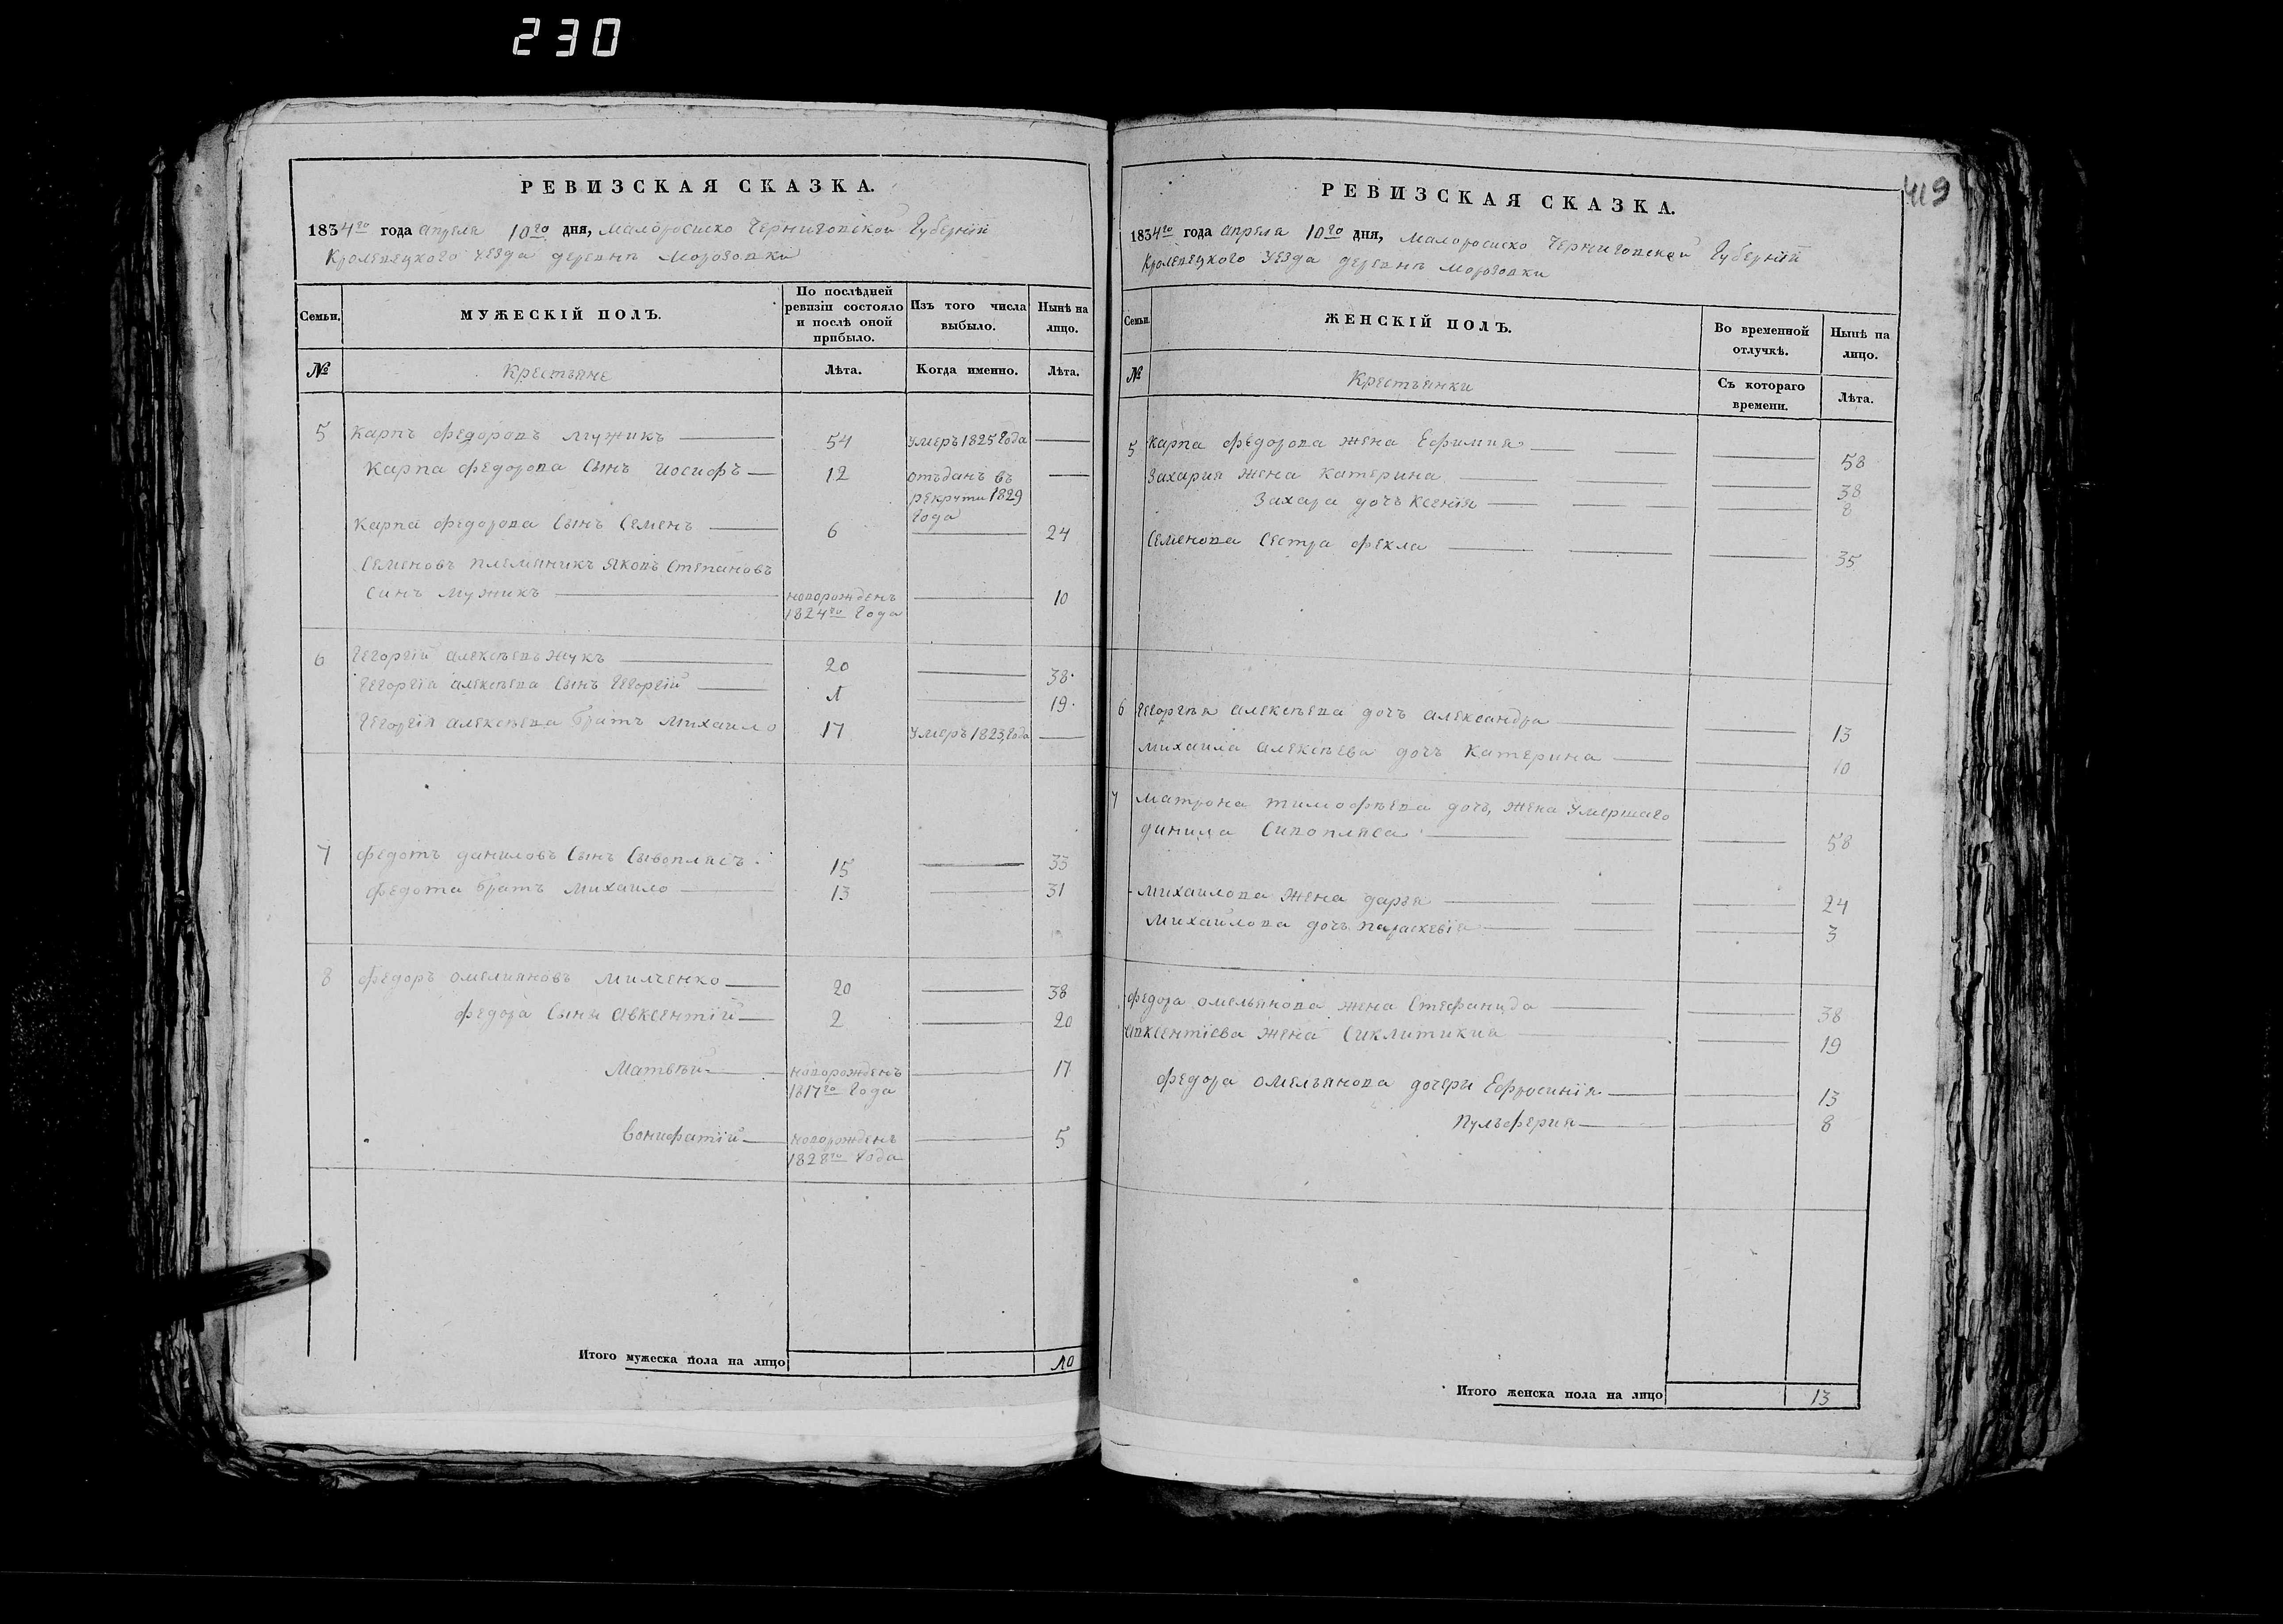 230
РЕВИЗСКАЯ СКАЗКА.
1834го года апреля 10го дня, Малоросиско Черниговской Губернии
Кролевецкого уезда деревнѣ Морозовки
Семьи.
МУЖЕСКІЙ ПОЛЪ.
По послѣдней ревизіи состояло и послѣ оной прибыло.
Изъ того числа выбыло.
Нынѣ на лицо.
№
Крестьяне
Лѣта.
Когда именно.
Лѣта.
5 Карпъ федоровъ Мужикъ 54 умеръ 1825 Года
Карпа федорова Сынъ иосифъ 12 отъданъ въ
рекрути 1829
Года
Карпа федорова Сынъ Семенъ 6 24
Семеновъ племяникъ Яковъ Степановъ
Синъ Мужикъ новорожденъ 10
1824го Года
6 Гегоргій алексѣевъ Жукъ 20 38
Гегоргія алексѣева Сынъ Гегоргій 1 19
Гегоргія алексѣева братъ Михаило 17 умеръ 1823, Года
7 федотъ даниловъ Сынъ Сывоплясъ 15 33
федота братъ Михаило 13 31
8 федоръ омелияновъ Милченко 20 38
федора Сыны авксентій 2 20
Матвѣй новорожденъ 17
1817го Года
Вонифатій новорожденъ 5
1828го Года
Итого мужеска пола на лицо 10
419
РЕВИЗСКАЯ СКАЗКА.
1834го года апреля 10го дня, Малоросиско Черниговской Губерніи
Кролевецкого уезда деревнѣ Морозовки
Семьи.
ЖЕНСКІЙ ПОЛЪ.
Во временной отлучкѣ.
Нынѣ на лицо.
№
Крестьянки
Съ котораго времени.
Лѣта.
5 Карпа федорова жена Ефимия 58
Захария жена Катерина 38
Захара дочъ Ксенія 8
Семенова Сестра фекла 35
6 Гегоргия алексѣева дочъ александра 13
Михаила алексѣева дочъ Катерина 10
7 Матрона тимофѣева дочъ, жена умершаго
данила Сивопляса 58
Михаилова жена дарья 24
Михаилова дочъ параскевія 3
федора омельянова жена Стефанида 38
авксентіева жена Сиклитикия 19
федора омельянова дочери Ефросинія 13
Пульферия 8
Итого женска пола на лицо 13